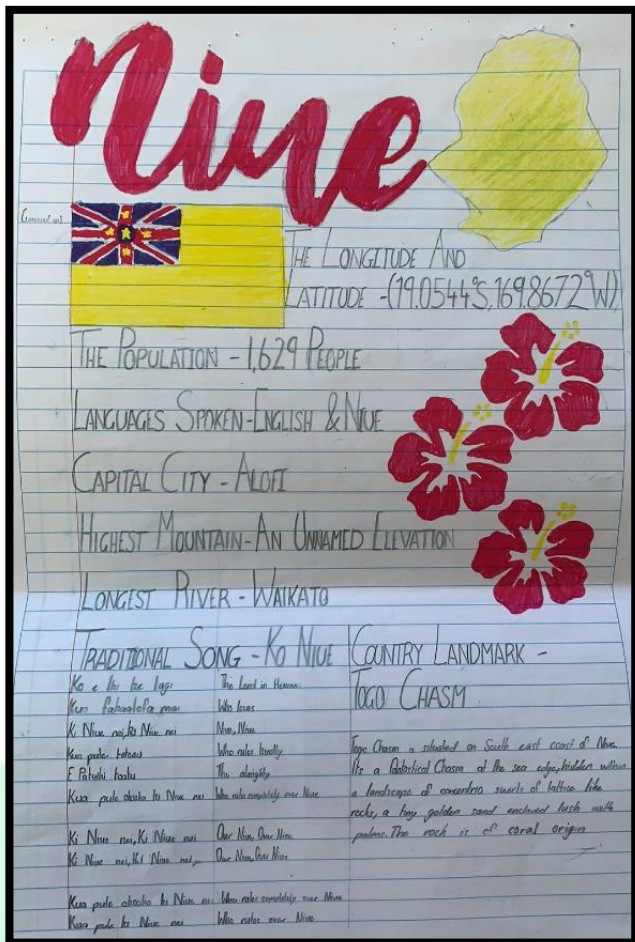 Niue
THE LONGITUDE AND
LATITUDE -(19.0544°S,169.8672°W)
THE POPULATION - 1,629 PEOPLE
LANGUAGES SPOKEN-ENGLISH & NIUE
CAPITAL CITY - ALOFI
HIGHEST MOUNTAIN-AN UNNAMED ELEVATION
LONGEST RIVER - WAIKATO
TRADITIONAL SONG - KO NIUE
Ko e Iki he lagi The Lord in Heaven
Kua fakaalofa mai Who loves
Ki Niue nei, ki Niue nei Niue, Niue
Kua pule totonu Who rules kindly
E Patuiki toatu The almighty
Kua pule okooko ki Niue nei Who rules completely over Niue
Ki Niue nei, Ki Niue nei Over Niue, Over Niue
Ki Niue nei, Ki Niue nei, Over Niue, Over Niue
Kua pule okooko ki Niue nei Who rules completely over Niue
Kua pule ki Niue nei Who rules over Niue
COUNTRY LANDMARK -
TOGO CHASM
Togo Chasm is situated on South east coast of Niue.
It's a fantastical Chasm at the sea edge, hidden within
a landscape of concentric swirls of lattice like
rocks, a tiny golden sand enclosed lush with
palms. The rock is of coral origin